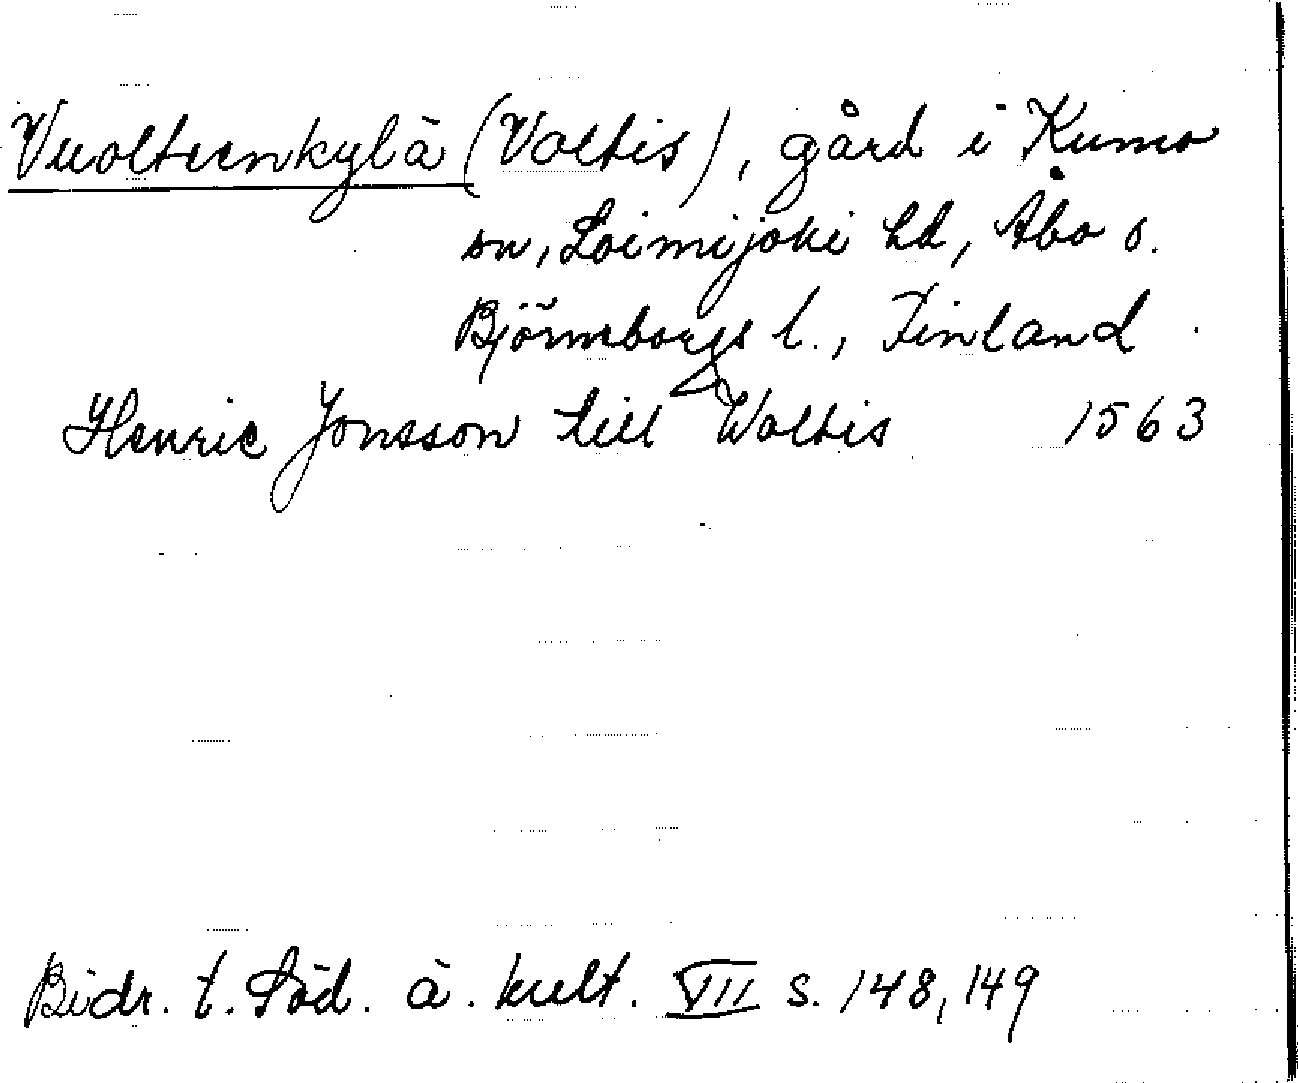 Vuolteenkylä (Voltis), gård i Kumo
sn, Loimijoki hd, Åbo o.
Björneborgs l., Finland
Henric Jonsson till Woltis 1563
Bidr. t. Söd. ä. kult. VII s. 148, 149